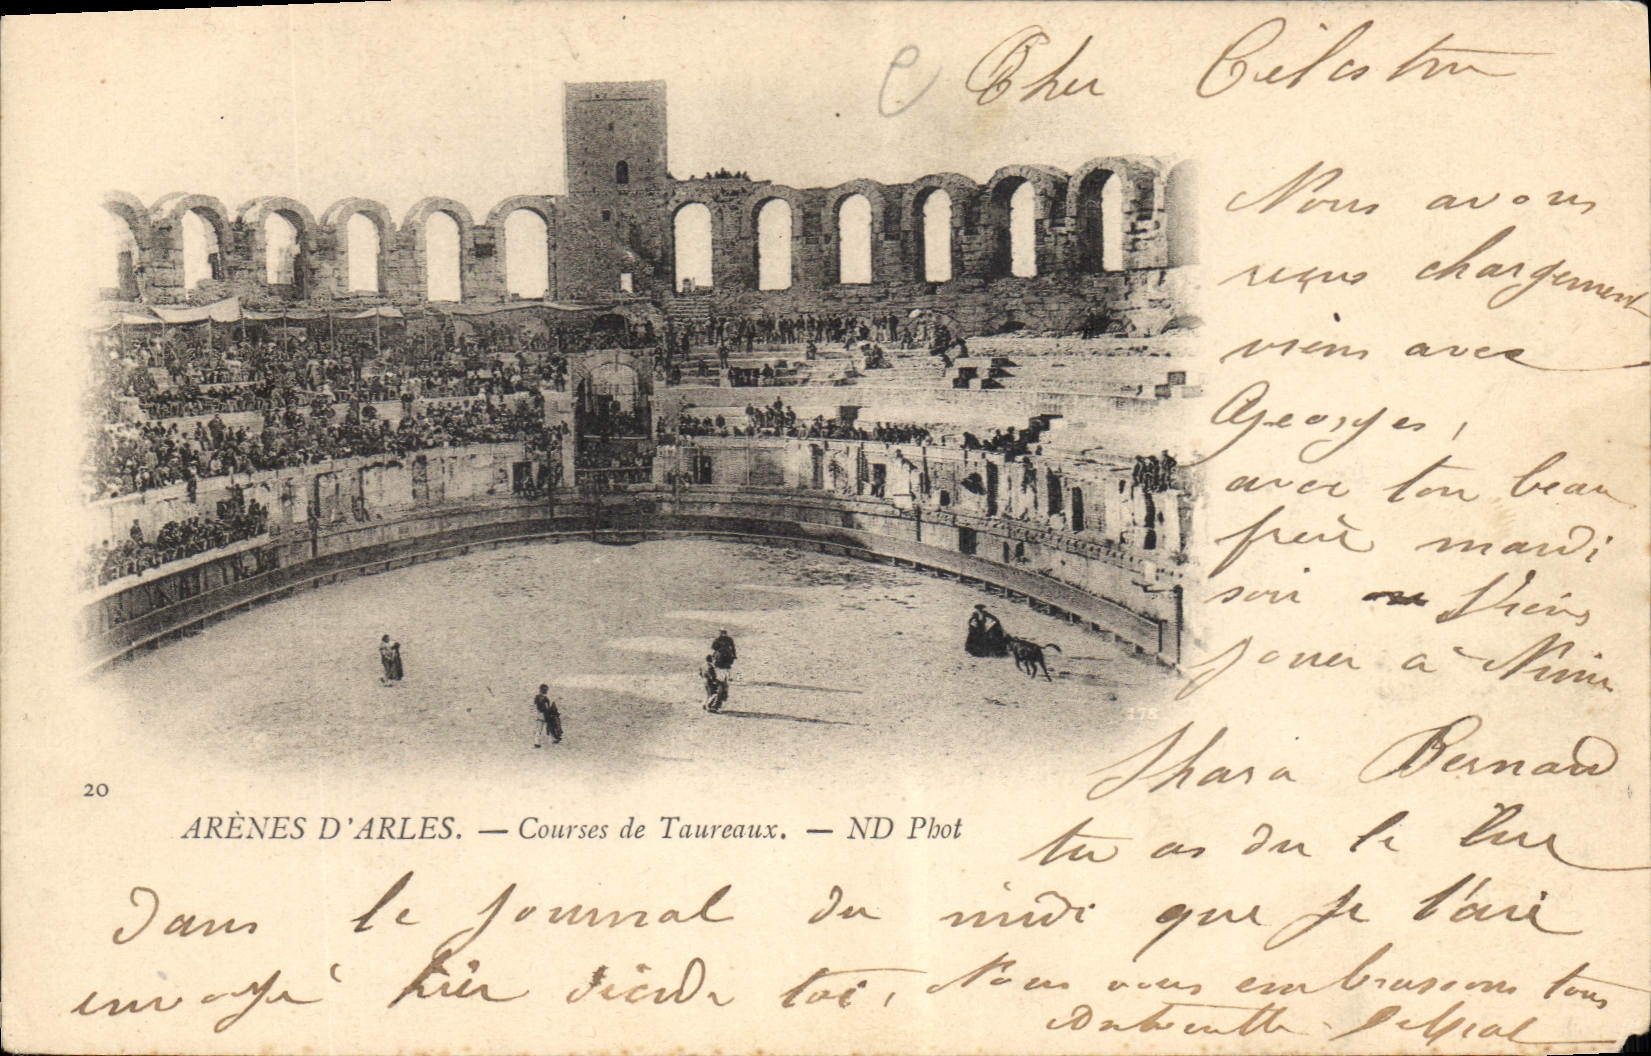 Cher Célestin
Nous avons
reçus chargement
viens avec
Georges,
avec ton beau
frère mardi
soir Viens
jouer à Nime
Shara Bernard
tu as du le lire
dans le journal du midi que je t'ais
envoyé hier
toi, Nous vous embrassons tous
175
20
ARÈNES D'ARLES. — Courses de Taureaux. — ND Phot